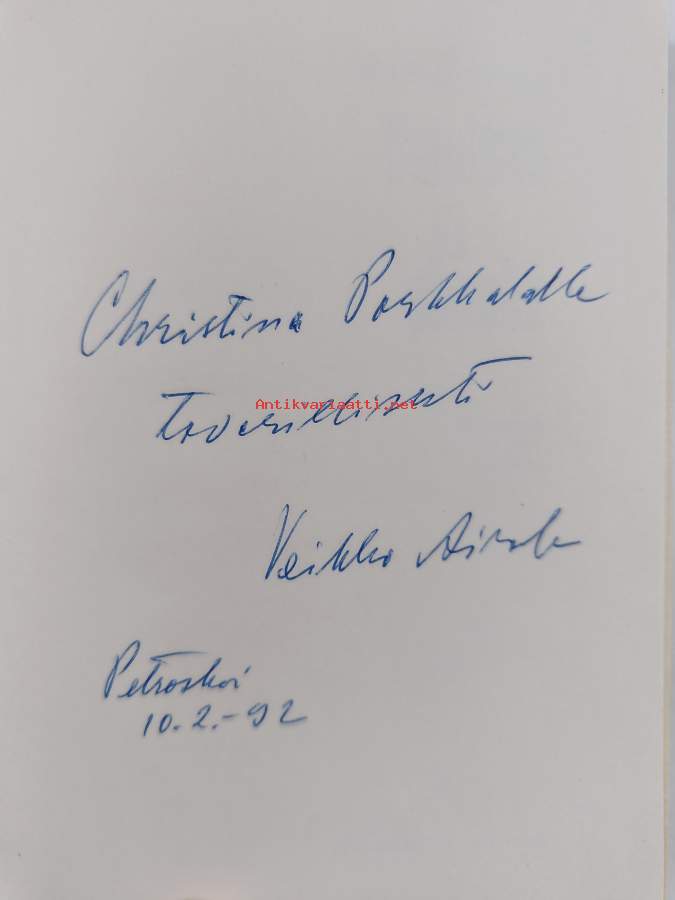 Christina Porkkalalle
Antikvariaatti.net
toverillisesti
Veikko
Petroskoi
10.2.-92